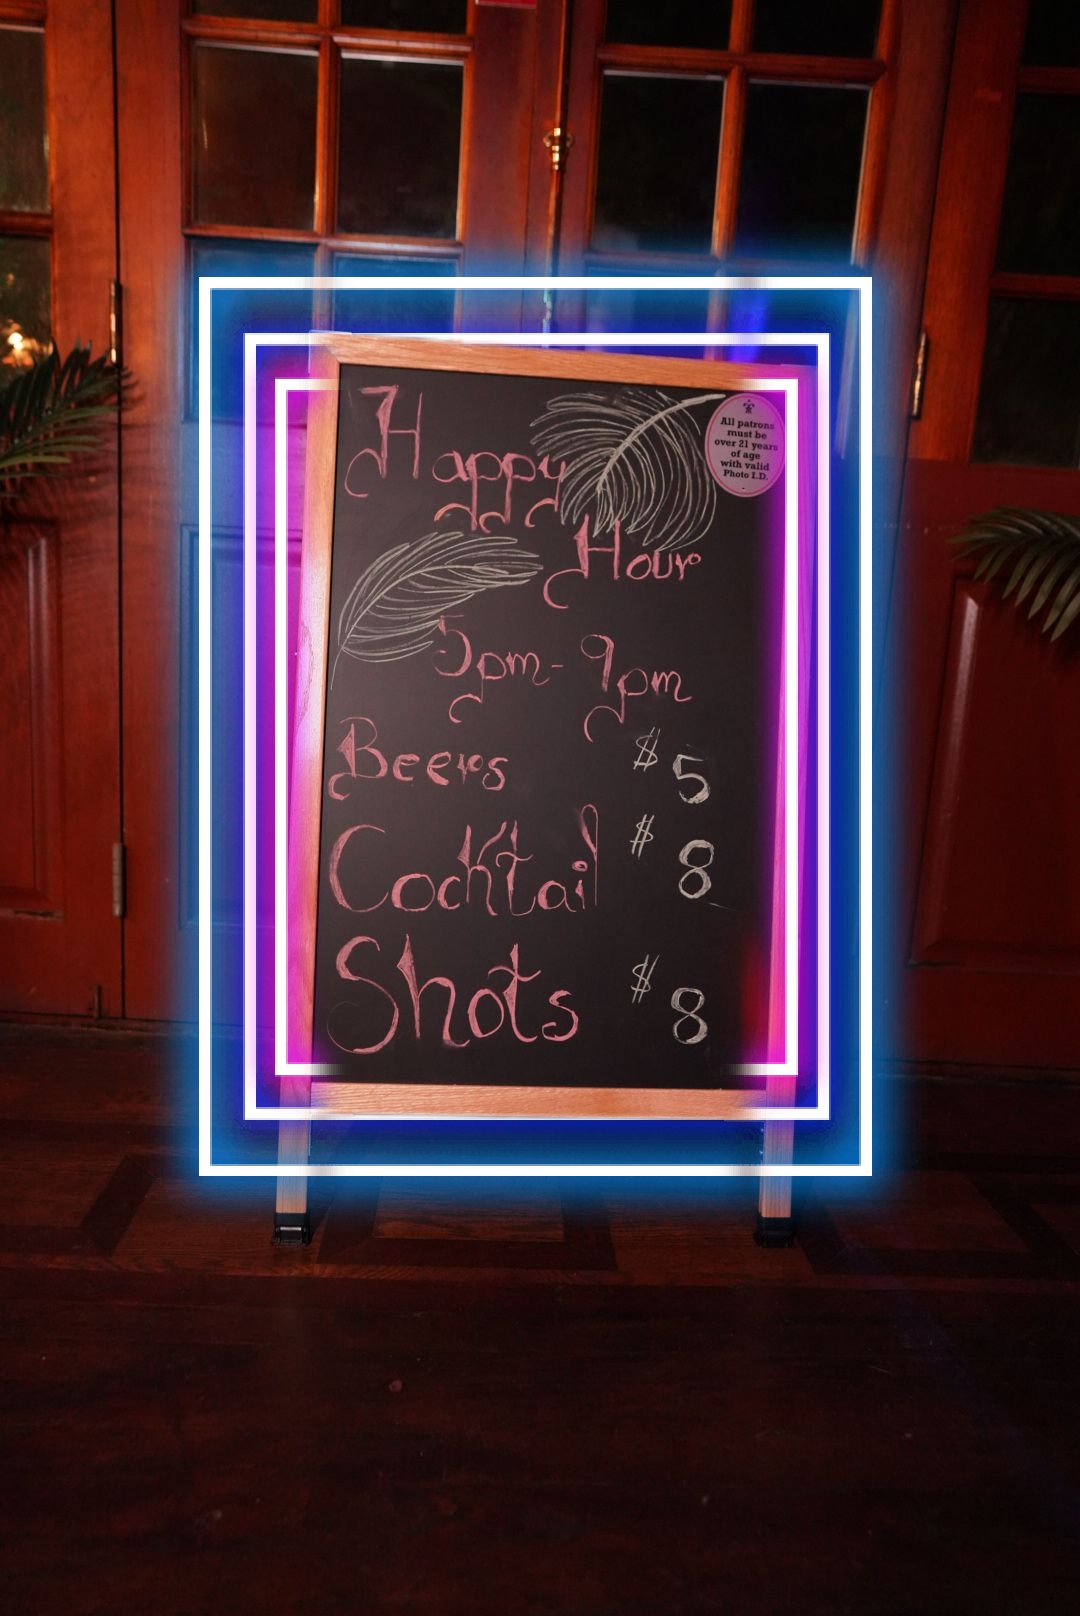 Happy
All patrons
must be
over 21 years
of age
with valid
Photo I.D.
Hour
5pm - 9pm
Beers $5
Cocktail $8
Shots $8